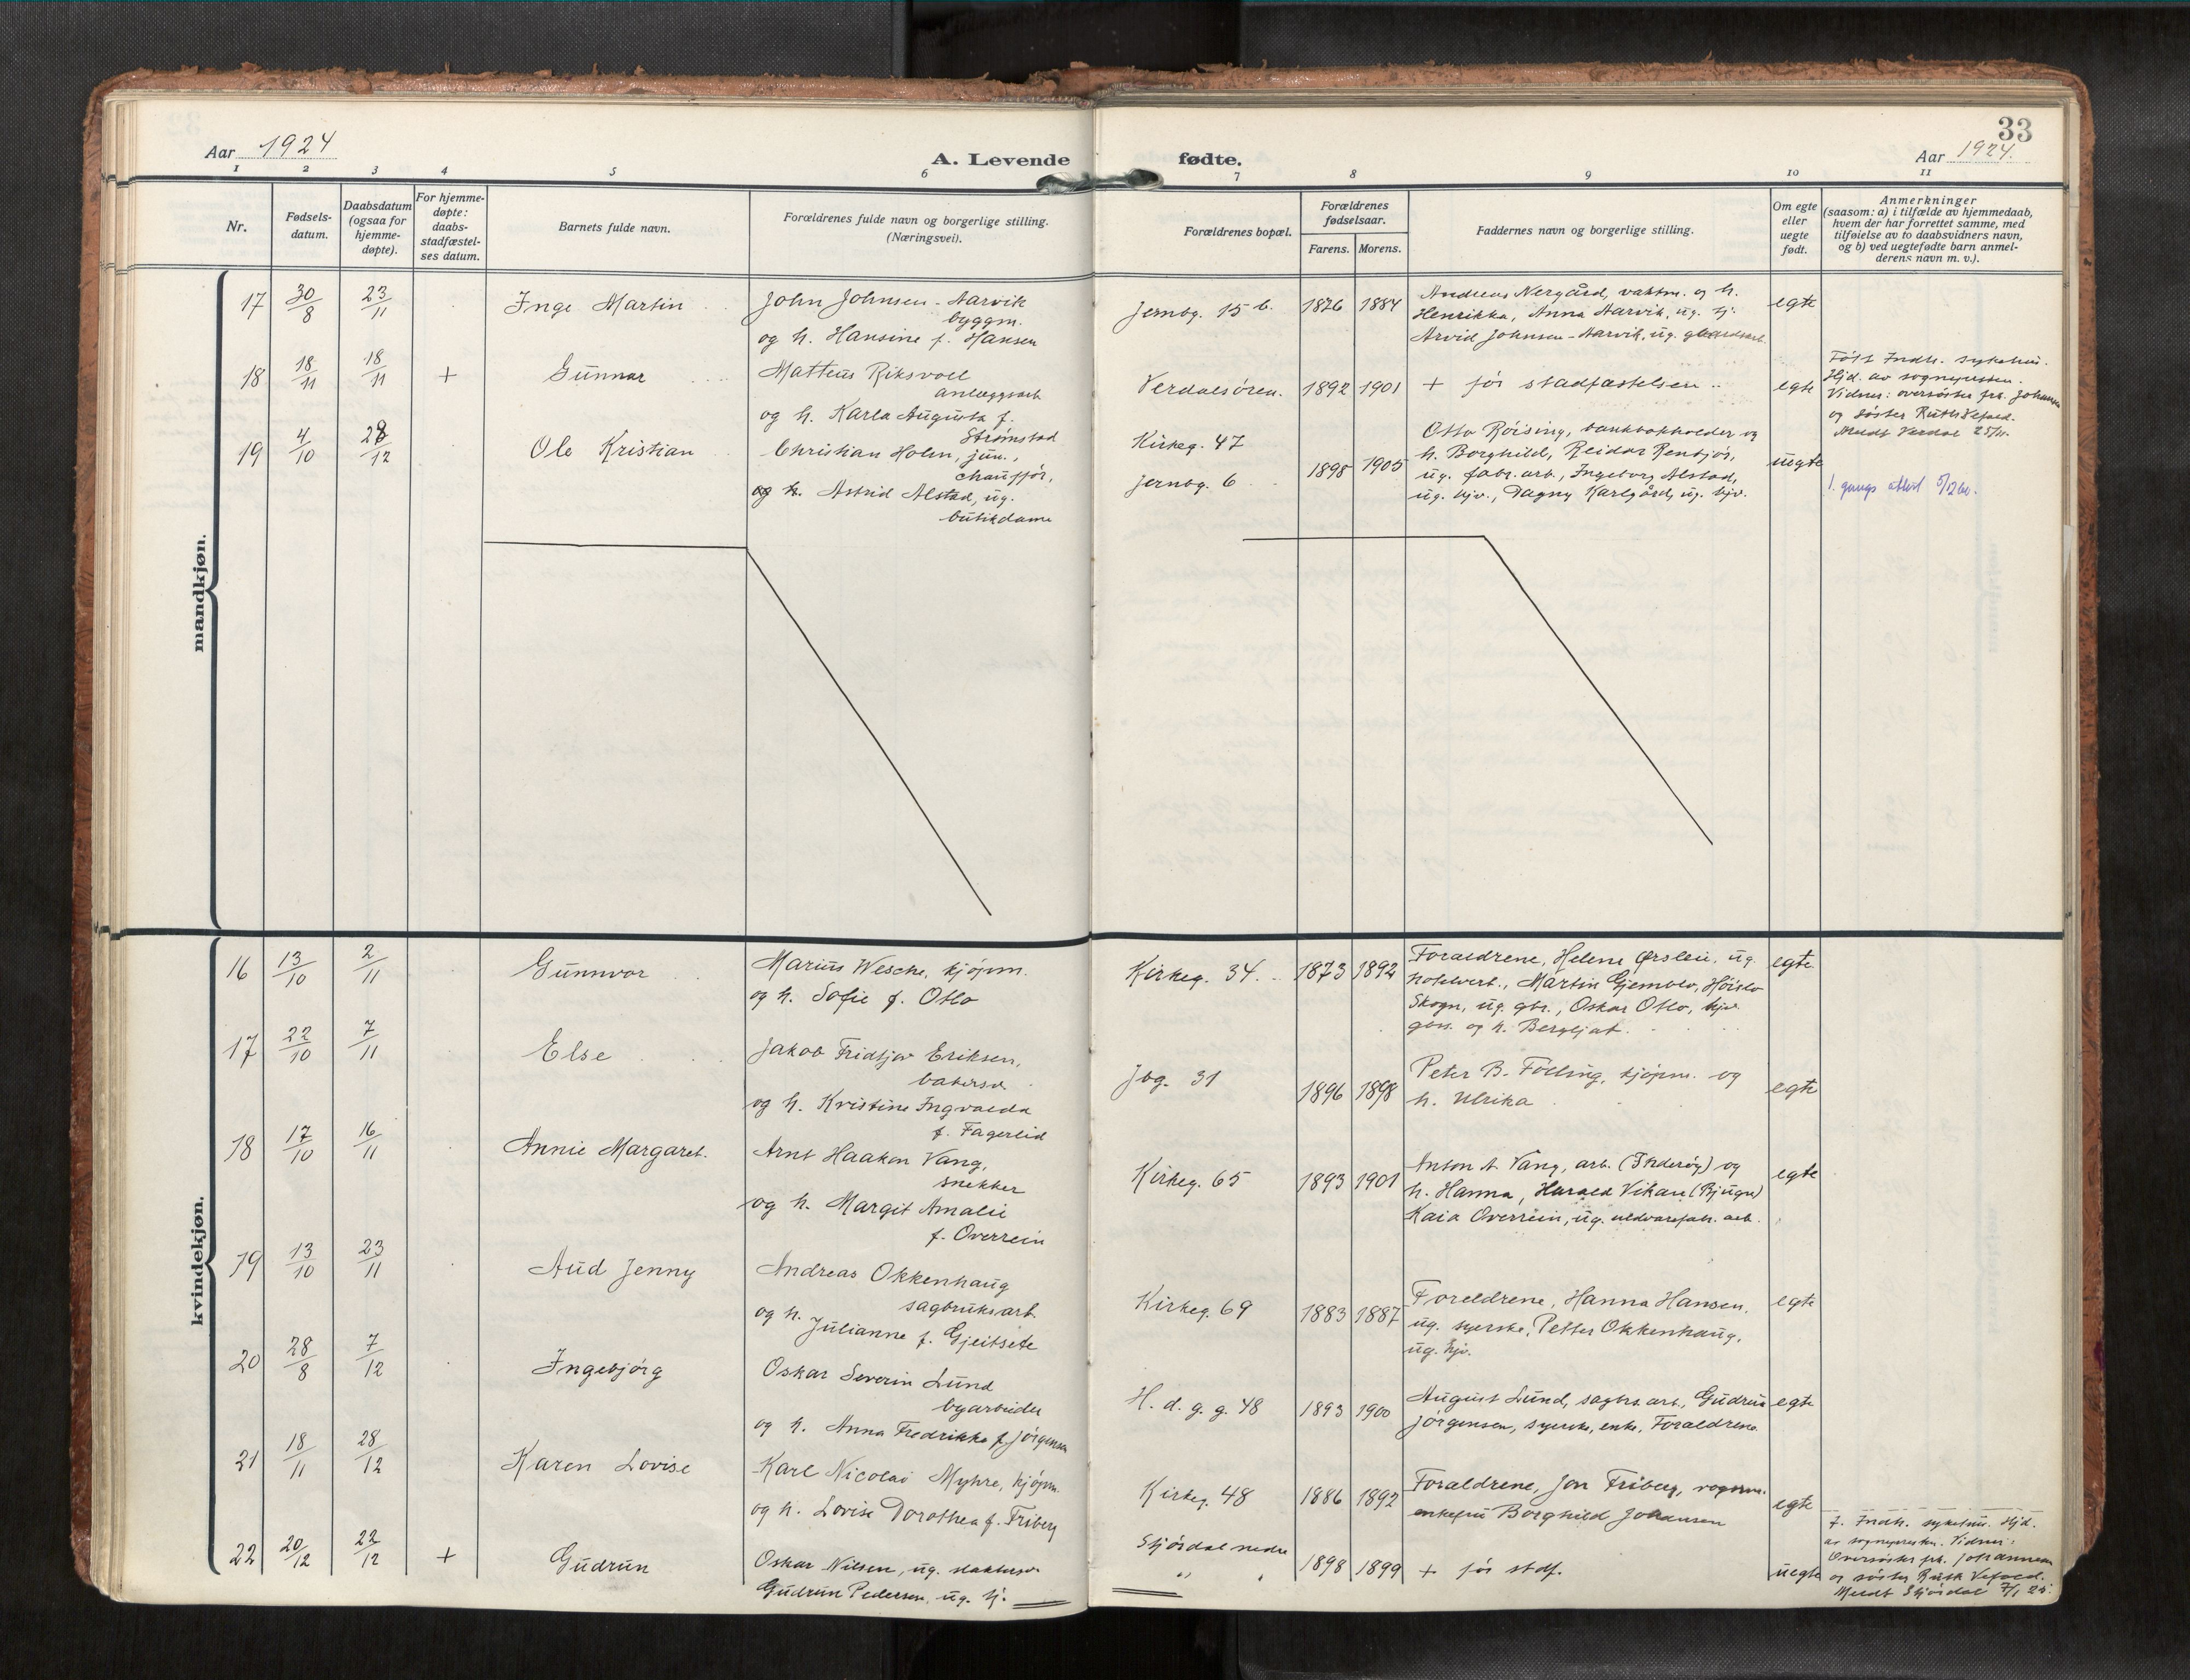 33
Aar 1924
A. Levende
fødte.
Aar 1924.
1 2 3 4 5 6 7 8 9 10 11
Nr.
Fødsels-
datum.
Daabsdatum
(ogsaa for
hjemme-
døpte).
For hjemme-
døpte:
daabs-
stadfæstel-
ses datum.
Barnets fulde navn.
Forældrenes fulde navn og borgerlige stilling.
(Næringsvei).
Forældrenes bopæl.
Forældrenes
fødselsaar.
Farens. Morens.
Faddernes navn og borgerlige stilling.
Om egte
eller
uegte
født.
Anmerkninger
(saasom: a) i tilfælde av hjemmedaab,
hvem der har forrettet samme, med
tilføielse av to daabsvidners navn,
og b) ved uegtefødte barn anmel-
derens navn m. v.).
mandkjøn.
17 30/8 23/11 Inge Martin
John Johnsen-Aarvik
byggm.
og h. Hansine f. Hansen
Jernbg. 15 b. 1876 1884
Andreas Nergård, vaktm. og h.
Henrikka, Anna Aarvik, ug. hj.
Arvid Johnsen-Aarvik, ug.
egte
18 18/11 18/11 + Gunnar
Matteus Riksvoll
anlæggsarb
og h. Karla Augusta f.
Strømstad
Verdalsøren. 1892 1901 + før stadfæstelsen egte
Født Indh. sykehus.
Hjd. av sognepresten.
Vidner: oversøster frk. Johansen
og søster Ruth
Meldt Verdal 25/11.
19 4/10 28/12 Ole Kristian
Christian Holm, jun.,
chauffør,
og h. Astrid Alstad, ug.
butikdame
Kirkeg. 47
Jernbg. 6 1898 1905
Otto Røising, bankbokholder og
h. Borghild, Reidar Renbjør,
ug. fabr. arb., Ingeborg Alstad,
ug. hjv., Dagny Karlgård, ug. hjv.
uegte
1. gangs attest 5/12 60.
kvindekjøn.
16 13/10 2/11 Gunnvor
Marius Wesche, kjøpm.
og h. Sofie f. Otlo
Kirkeg. 34. 1873 1892
Foraeldrene, Helene Ørslei, ug.
hotelvert., Martin Gjemble, Høislo
Skogn, ug. gbr., Oskar Otlo, hjv.
gbr. og h. Bergljot.
egte
17 22/10 7/11 Else
Jakob Fridtjov Eriksen,
bakersv.
og h. Kristine Ingvalda
f. Fagerlid
Jbg. 31 1896 1898
Peter B. Følling, kjøpm. og
h. Ulrika
egte
18 17/10 16/11 Annie Margaret.
Arnt Haakon Vang,
snekker
og h. Margit Amalie
f. Overrein
Kirkeg. 65 1893 1901
Anton A. Vang, arb. (Inderøy) og
h. Hanna, Harald Vikan (Bjugn)
Kaia Overrein, ug. uldvarefabr. arb.
egte
19 13/10 23/11 Aud Jenny
Andreas Okkenhaug
sagbruksarb.
og h.
Julianne f. Gjeitsete
Kirkeg. 69 1883 1887
Foreldrene, Hanna Hansen,
ug. syerske, Petter Okkenhaug,
ug. hjv.
egte
20 28/8 7/12 Ingebjørg
Oskar Severin Lund
byarbeider
og h. Anna Fredrikke f. Jørgensen
H. d. g. g. 48 1893 1900
August Lund, sagbrs. arb., Gudrun
Jørgensen, syerske, enke, Foraldrene
egte
21 18/11 28/12 Karen Lovise
Karl Nicolai Myhre, kjøpm.
og h. Lovise Dorothea f. Friberg
Kirkeg. 48 1886 1892
Foraldrene, Jon Friberg,
enkefru Borghild Johansen
egte
22 20/12 22/12 + Gudrun
Oskar Nilsen, ug. slaktersv.
Gudrun Pedersen, ug. hj.
Stjørdal nedre
" " 1898 1899 + før stdf. uegte
F. Indh. sykehus. Hjd.
av sognepresten. Vidner:
Oversøster frk. Johannesen
og søster Ruth
Meldt Stjørdal 7/1 25.